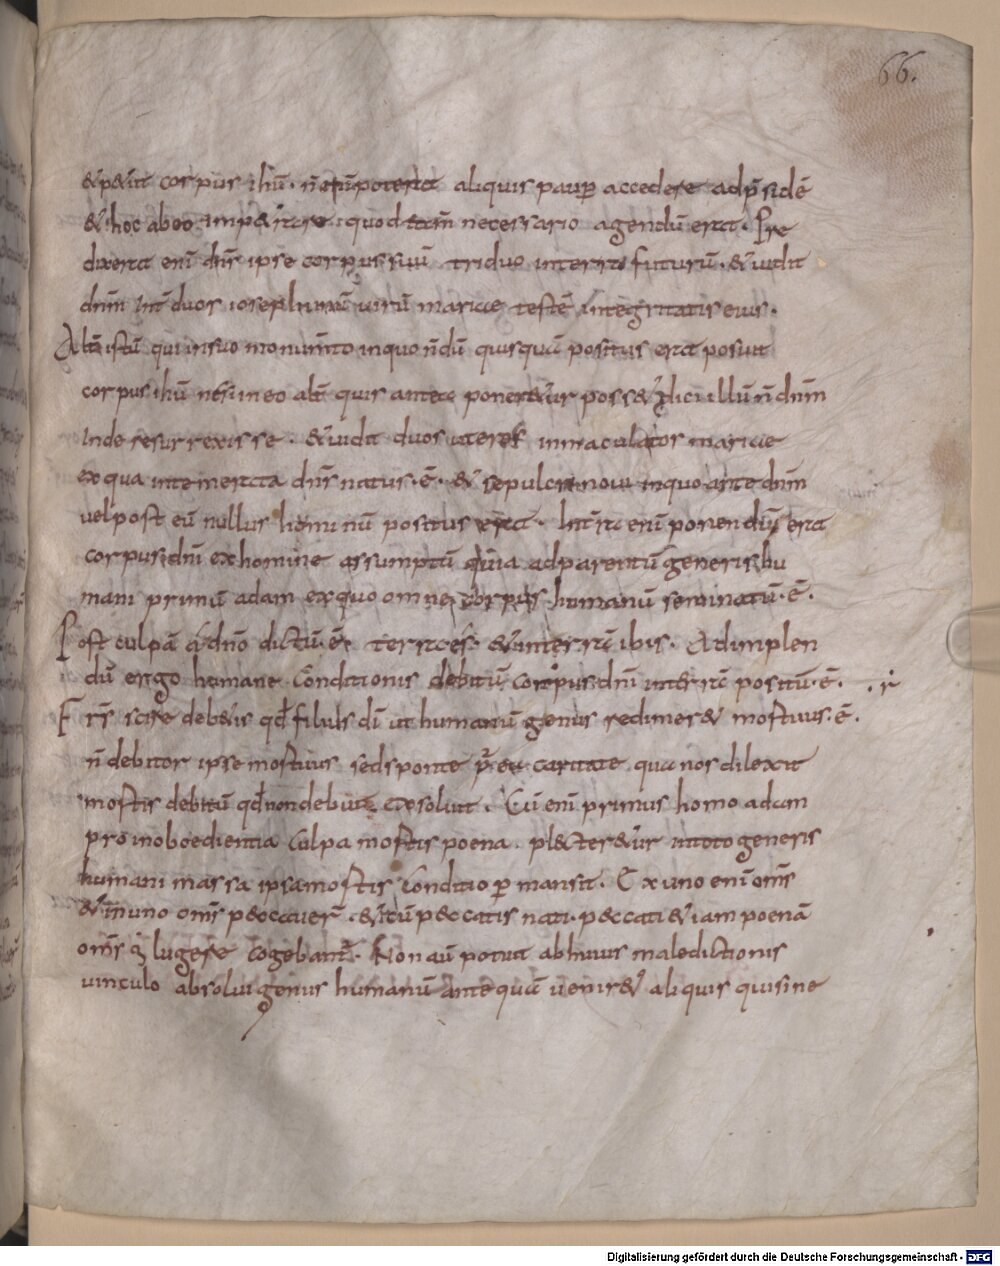 66.
& p&iit corpus ihū. n̄ enī poterat aliquis paup accedere ad p̄sidē
& hoc ab eo imp&rare quod tam necessario agendū erat. Pre
dixerat enī dn̄s ipse corpus suū triduo in terra futurū. & uidit
dn̄m int̄ duos ioseph unū uirū mariae testē integritatis eius.
Alt̄ istū qui in suo monumto in quo n̄dū quisquā positus erat posuit
corpus ihū nisi in eo alt̄ quis antea poner&ur poss& dici illū n̄ dn̄m
Inde resurrexisse. & uidit duos uteros inmaculator mariae
ex qua intemerata dn̄s natus.ē. & sepulcri noui in quo ante dn̄m
uel post eū nullus hominū positus erat. Int̄ra enī ponendū erat
corpus dn̄i ex homine assumptū quia ad parentū generis hu
mani primū adam ex quo omne corpus humanū seminatū.ē.
Post culpā a dn̄o dictū.ē. terra es. & in terrā ibis. Adimplen
dū ergo humane conditionis debitū corpus dn̄i in terrā positū.ē.
Frs̄ scire deb&is qd̄ filius dī ut humanū genus redimer& mortuus.ē.
n̄ debitor ipse mortuus sed sponte p̄ ea caritate qua nos dilexit
mortis debitū qd̄ non debuit exsoluit. Cū enī primus homo adam
pro inoboedientia culpa mortis poena pl&cter&ur in toto generis
humani massa ipsa mortis conditio p mansit. Ex uno enī om̄s
& in uno om̄s peccauer̄. & cū peccatis nati. peccati & iam poenā
om̄s lugere cogebant̄. Non aū potuit ab huius maledictionis
uinculo absolui genus humanū ante quā uenir& aliquis qui sine
Digitalisierung gefördert durch die Deutsche Forschungsgemeinschaft - DFG